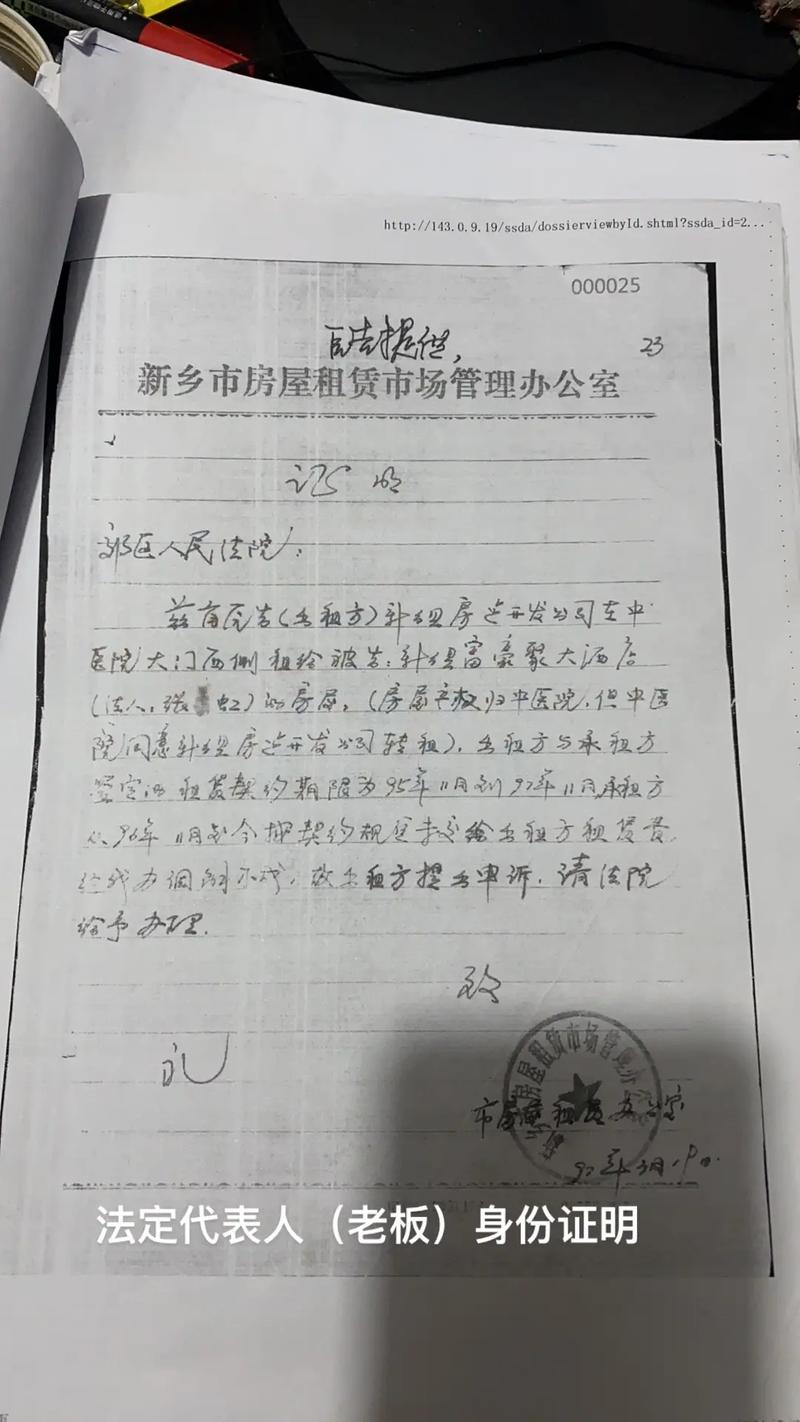 http://143.0.9.19/ssda/dossierviewbyId.shtml?ssda_id=2...
000025
提供,
23
新乡市房屋租赁市场管理办公室
证明
郊区人民法院:
兹有原告(出租方)新乡房产开发公司在中
医院大门西侧租给被告:新乡富豪聚大酒店
(法人:张 虹)的房屋,(房屋产权归中医院,但中医
院同意新乡房产开发公司转租),出租方与承租方
签定的租赁契约期限为95年11月到97年11月,承租方
从96年11月至今押契约规定未交给出租方租赁费,
经我办调解不成,故出租方提出申诉,请法院
给予办理.
致
礼
房屋租赁市场管理办
市房屋租赁办公室
97年3月
法定代表人(老板)身份证明